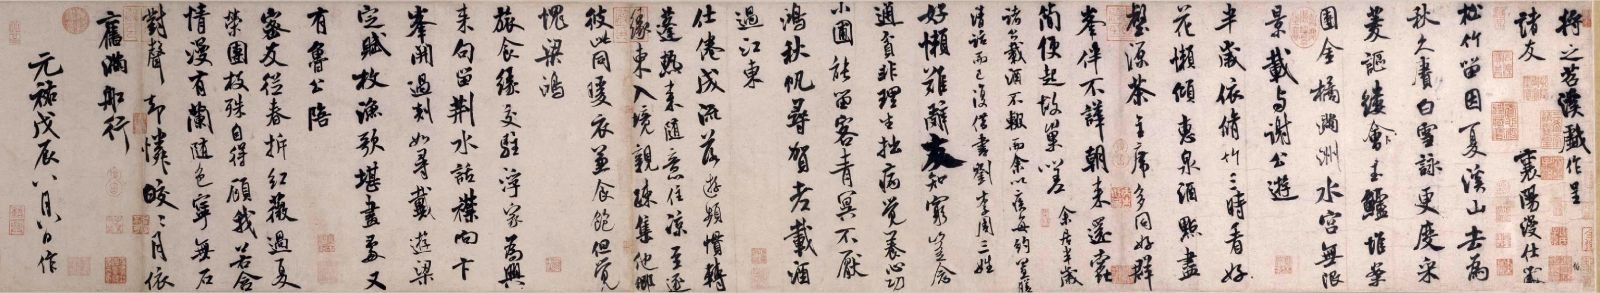 將之苕溪戲作呈
諸友　襄陽漫仕黻
松竹留因夏溪山去為
秋久賡白雪詠更度采
菱謳縷會玉鱸堆案
團金橘滿洲水宮無限
景載與謝公遊
半歲依脩竹三時看好
花懶傾惠泉酒點盡
壑源茶主席多同好群
峯伴不譁朝來還蠹
簡便起故巢嗟　余居半歲
諸公載酒不輟而余以疾每約置膳
清話而已復借書劉李周三姓
好懶難辭友知窮豈念
通貧非理生拙病覺養心功
小圃能留客青冥不厭
鴻秋帆尋賀老載酒
過江東
仕倦成流落遊頻慣轉
蓬熱來隨意住涼至逐
緣東入境親疎集他鄉
彼此同暖衣兼食飽但覺
愧梁鴻
旅食緣交駐浮家為興
來句留荊水話襟向卞
峯開過剡如尋戴遊梁
定賦枚漁歌堪畫處又
有魯公陪
密友從春拆紅薇過夏
榮團枝殊自得顧我若含
情漫有蘭隨色寧無石
對聲却憐皎〻月依
舊滿船行
元祐戊辰八月八日作